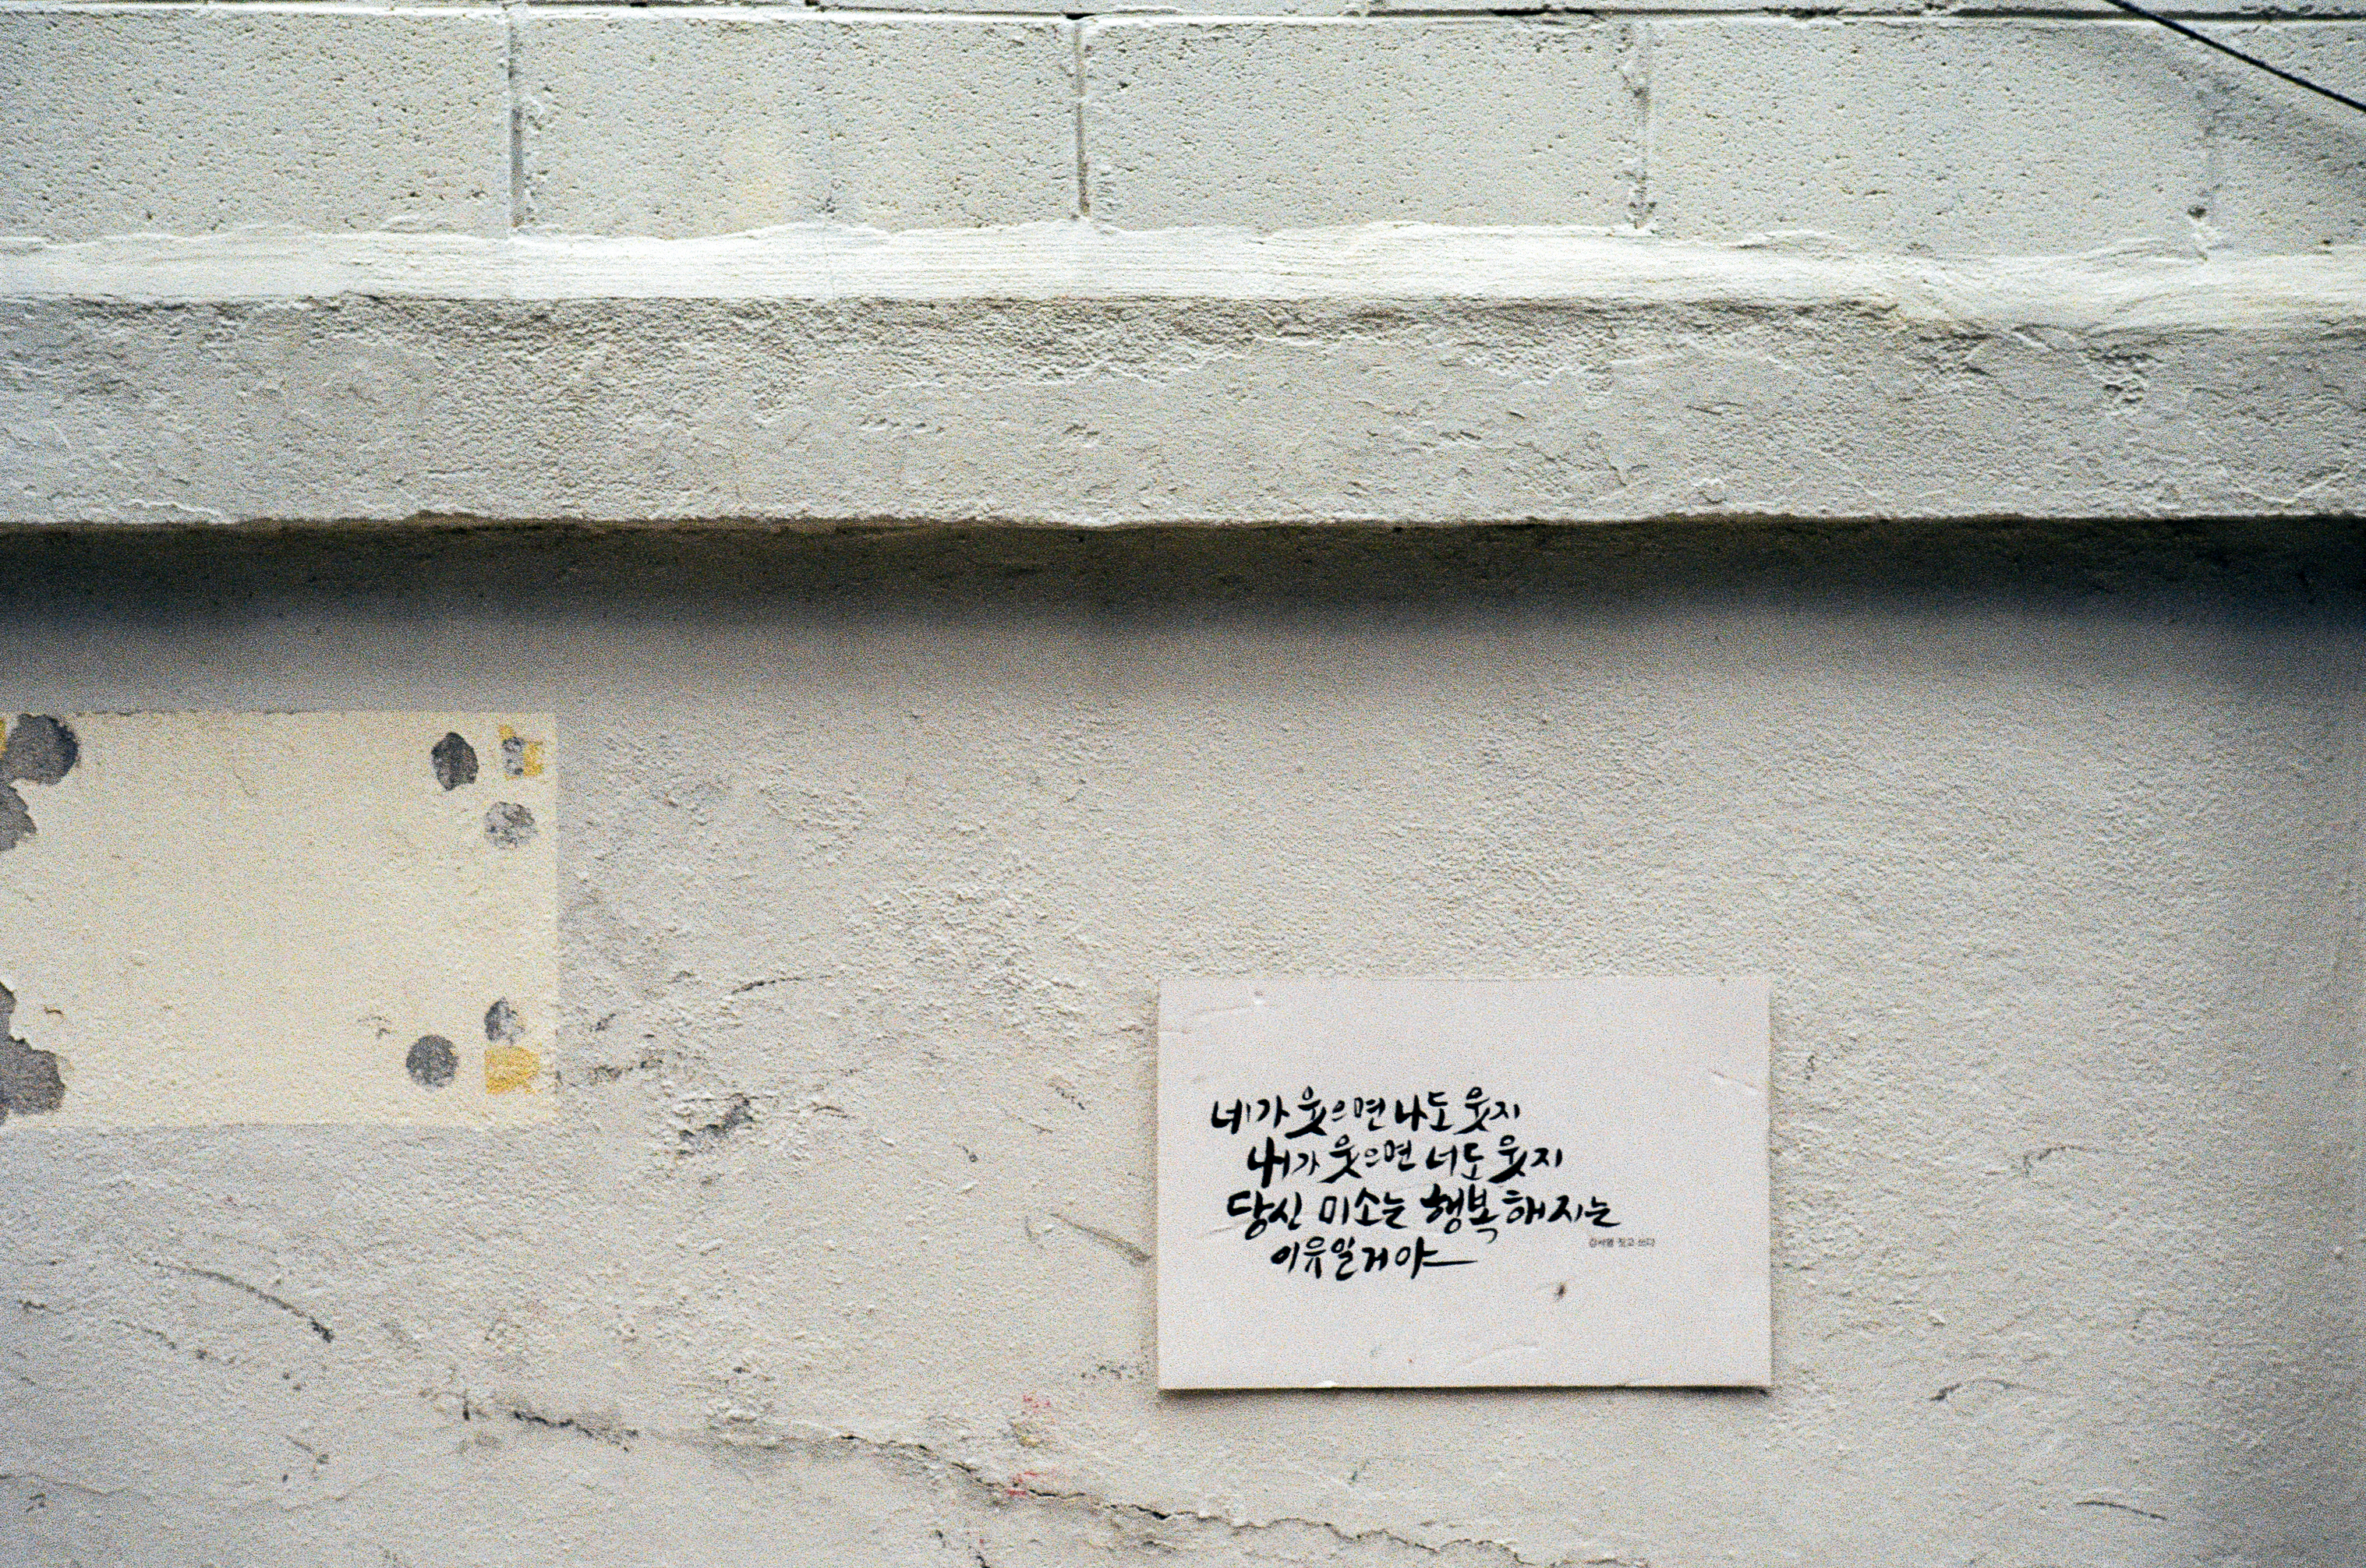 네가 웃으면 나도 웃지
내가 웃으면 너도 웃지
당신 미소는 행복해지는
짓고 쓰다
이유일거야